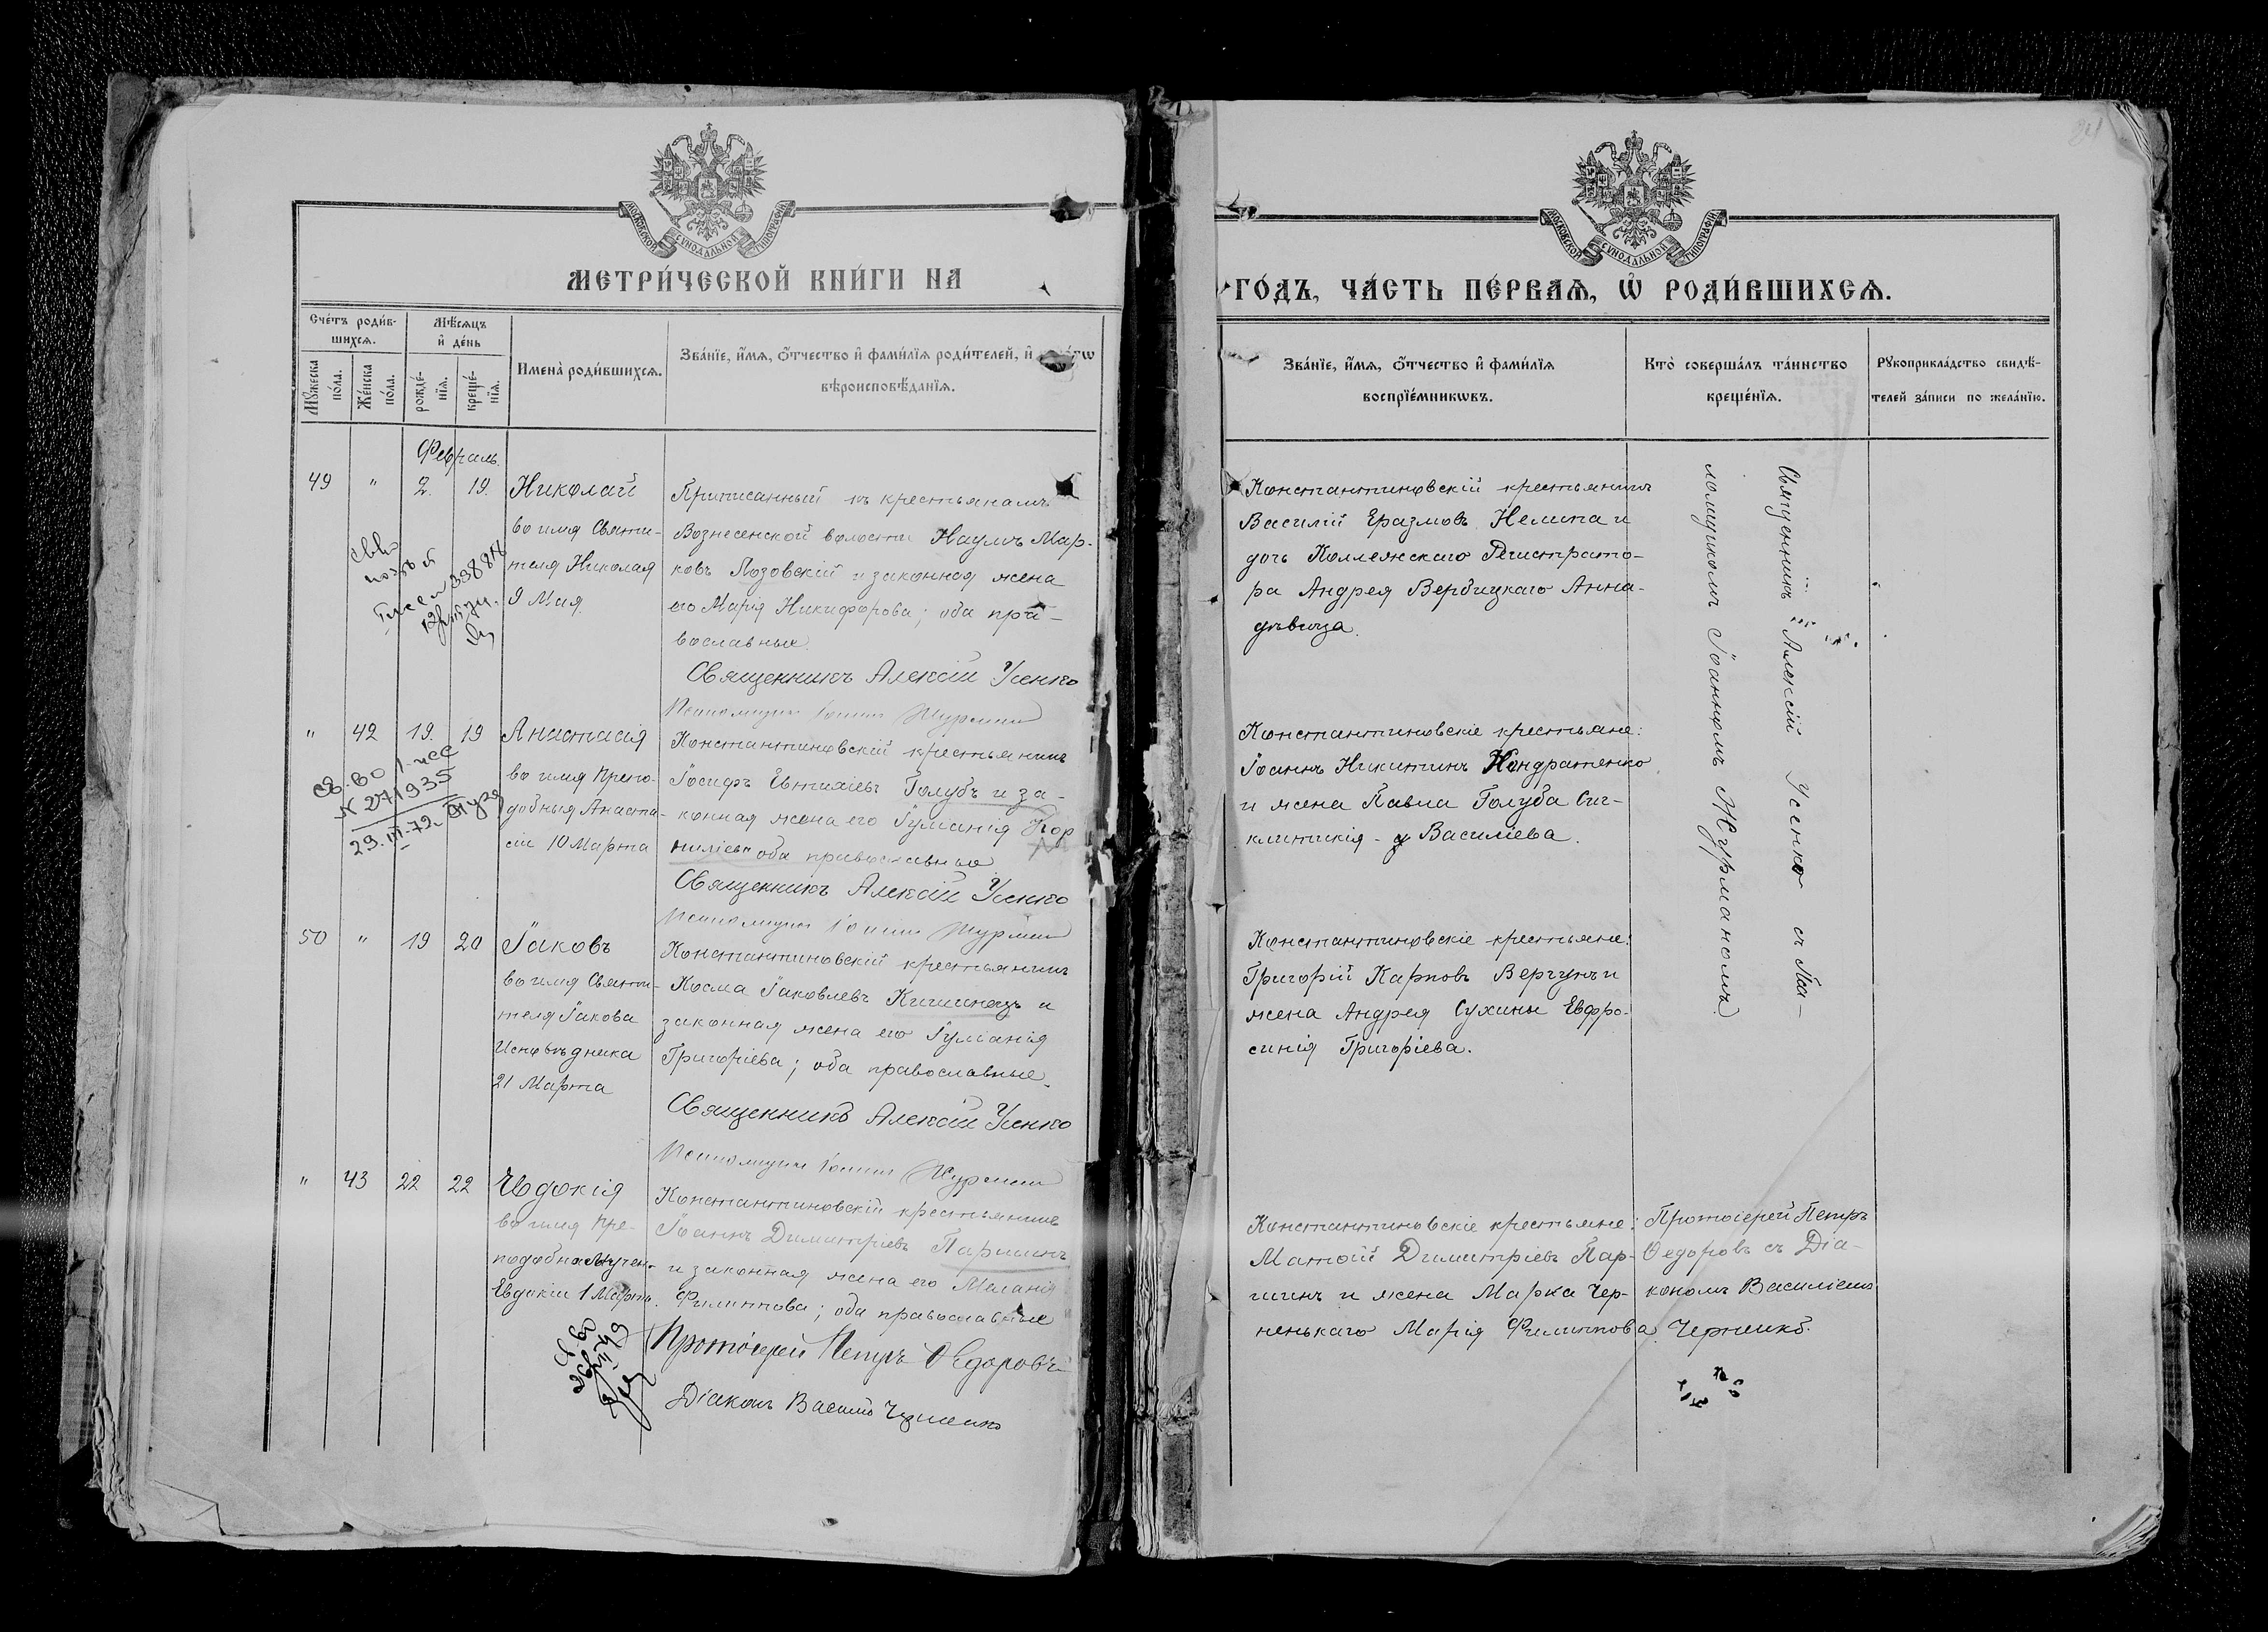 МОСКОВСКОЙ СѴНОДАЛЬНОЙ ТИПОГРАФІИ
МЕТРИ́ЧЕСКОЙ КНИ́ГИ НА
Сче́тъ роди́в-
шихсѧ.
Мꙋ́жеска
по́ла.
Же́нска
по́ла.
Мѣ́сѧцъ
и҆ де́нь
рожде́-
нїѧ.
креще́-
нїѧ.
Имена̀ роди́вшихсѧ.
Зва́нїе, и҆́мѧ, ѻ҆́тчество и҆ фами́лїѧ роди́телей, и҆
вѣроисповѣ́данїѧ.
Февраль.
49 " 2. 19. Николай
во имя Святи-
теля Николая
9 Мая.
Приписанный къ крестьянамъ
Вознесенской волости Наумъ Мар-
ковъ Лозовскій и законная жена
его Марія Никифорова; оба пра-
вославные.
Священникъ Алексій Усенко
Псаломщикъ Іоаннъ Журман
" 42 19. 19 Анастасія
во имя Препо-
добныя Анаста-
сіи 10 Марта
св-во
N 271935
29.III-72.
Константиновскій крестьянинъ
Іосифъ Евтихіевъ Голубъ и за-
конная жена его Іуліанія Кор
ниліева оба православные
Священникъ Алексій Усенко
Псаломщикъ Іоаннъ Журман
50 " 19 20 Іаковъ
во имя Святи-
теля Іакова
Исповѣдника
21 Марта
Константиновскій крестьянинъ
Косма Іаковлевъ Кишинецъ и
законная жена его Іуліанія
Григоріева; оба православные.
Священникъ Алексій Усенко
Псаломщикъ Іоаннъ Журман
" 43 22 22 Евдокія
во имя Пре-
подобномучен.
Евдокіи 1 Марта.
Константиновскій крестьянинъ
Іоаннъ Димитріевъ Паршинъ
и законная жена его Меланія
Филиппова; оба православные
Протоіерей Петръ Ѳедоровъ
Діаконъ Василій Черненко
МОСКОВСКОЙ СѴНОДАЛЬНОЙ ТИПОГРАФІИ
ГО́ДЪ, ЧА́СТЬ ПЕ́РВАѦ, Ѽ РОДИ́ВШИХСѦ.
Зва́нїе, и҆́мѧ, ѻ҆́тчество и҆ фами́лїѧ
воспрїе́мникѡвъ.
Кто̀ соверша́лъ та́инство
креще́нїѧ.
Рꙋкоприкла́дство свидѣ́-
телей за́писи по жела́нїю.
Константиновскій крестьянинъ
Василій Еразмовъ Нелипа и
дочь Коллежскаго Регистрато-
ра Андрея Вербицкаго Анна-
дѣвица.
Константиновскіе крестьяне:
Іоаннъ Никитинъ Кондратенко
и жена Павла Голуба Син-
клитикія - Василіева.
Константиновскіе крестьяне:
Григорій Карповъ Вергунъ и
жена Андрея Сухины Евфро-
синія Григоріева.
Священникъ Алексій Усенко съ Пса-
ломщикомъ Іоанномъ Журманомъ.
Константиновскіе крестьяне:
Матөій Димитріевъ Пар-
шинъ и жена Марка Чер-
ненькаго Марія Филиппова.
Протоіерей Петръ
Ѳедоровъ съ Діа-
кономъ Василіемъ
Черненко.